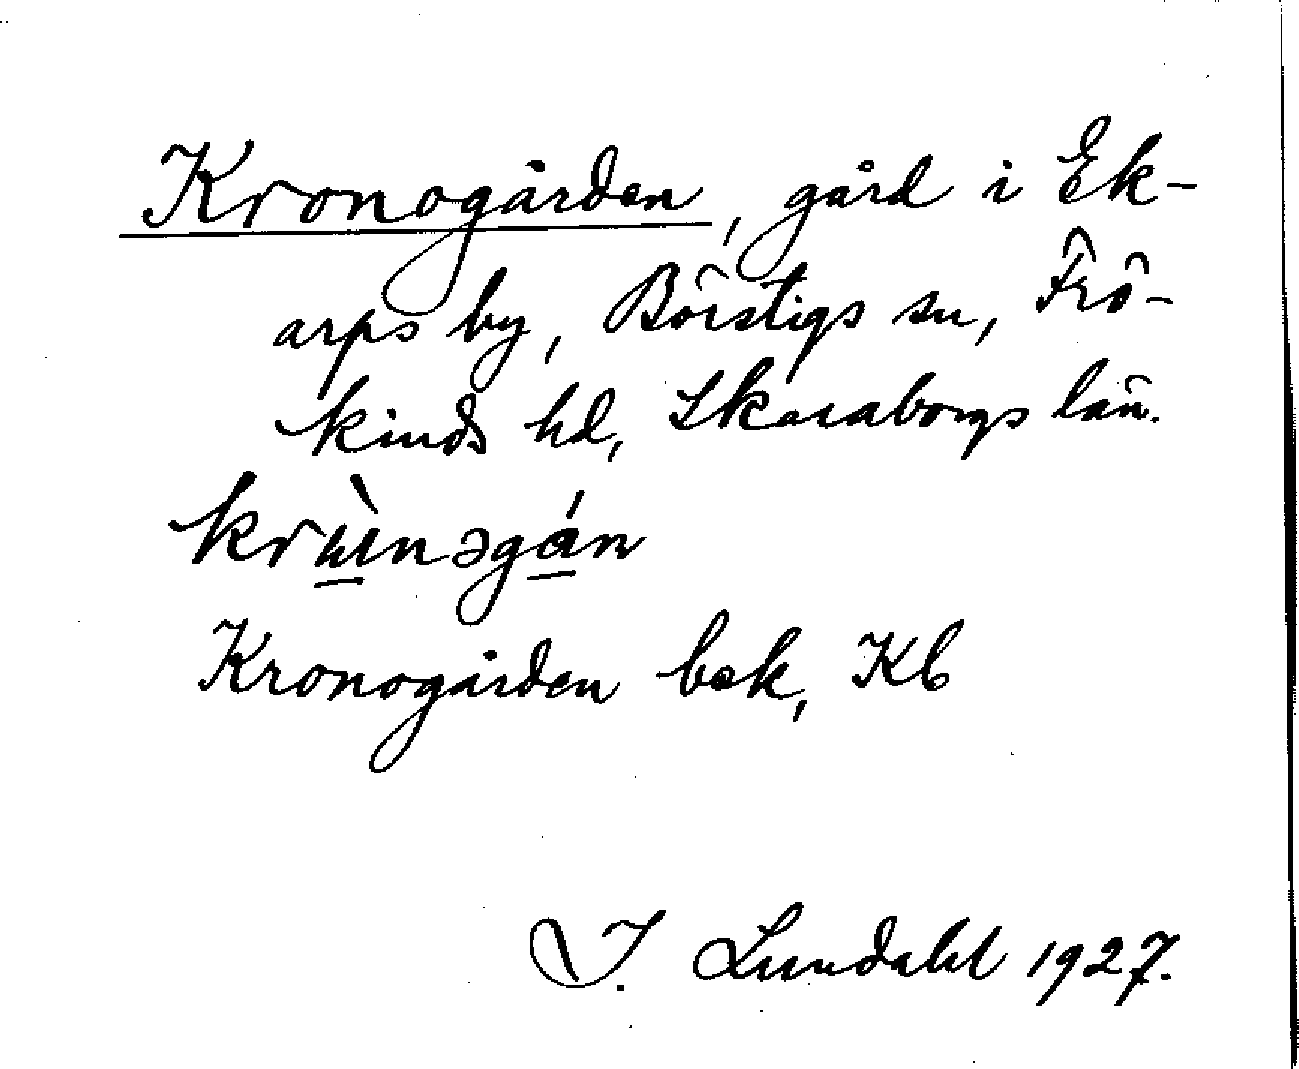 Kronogården, gård i Ek-
arps by, Börstigs sn, Frö-
kinds hd, Skaraborgs län.
krɯ̀nəgán
Kronogården bek, Kb
I. Lundahl 1927.